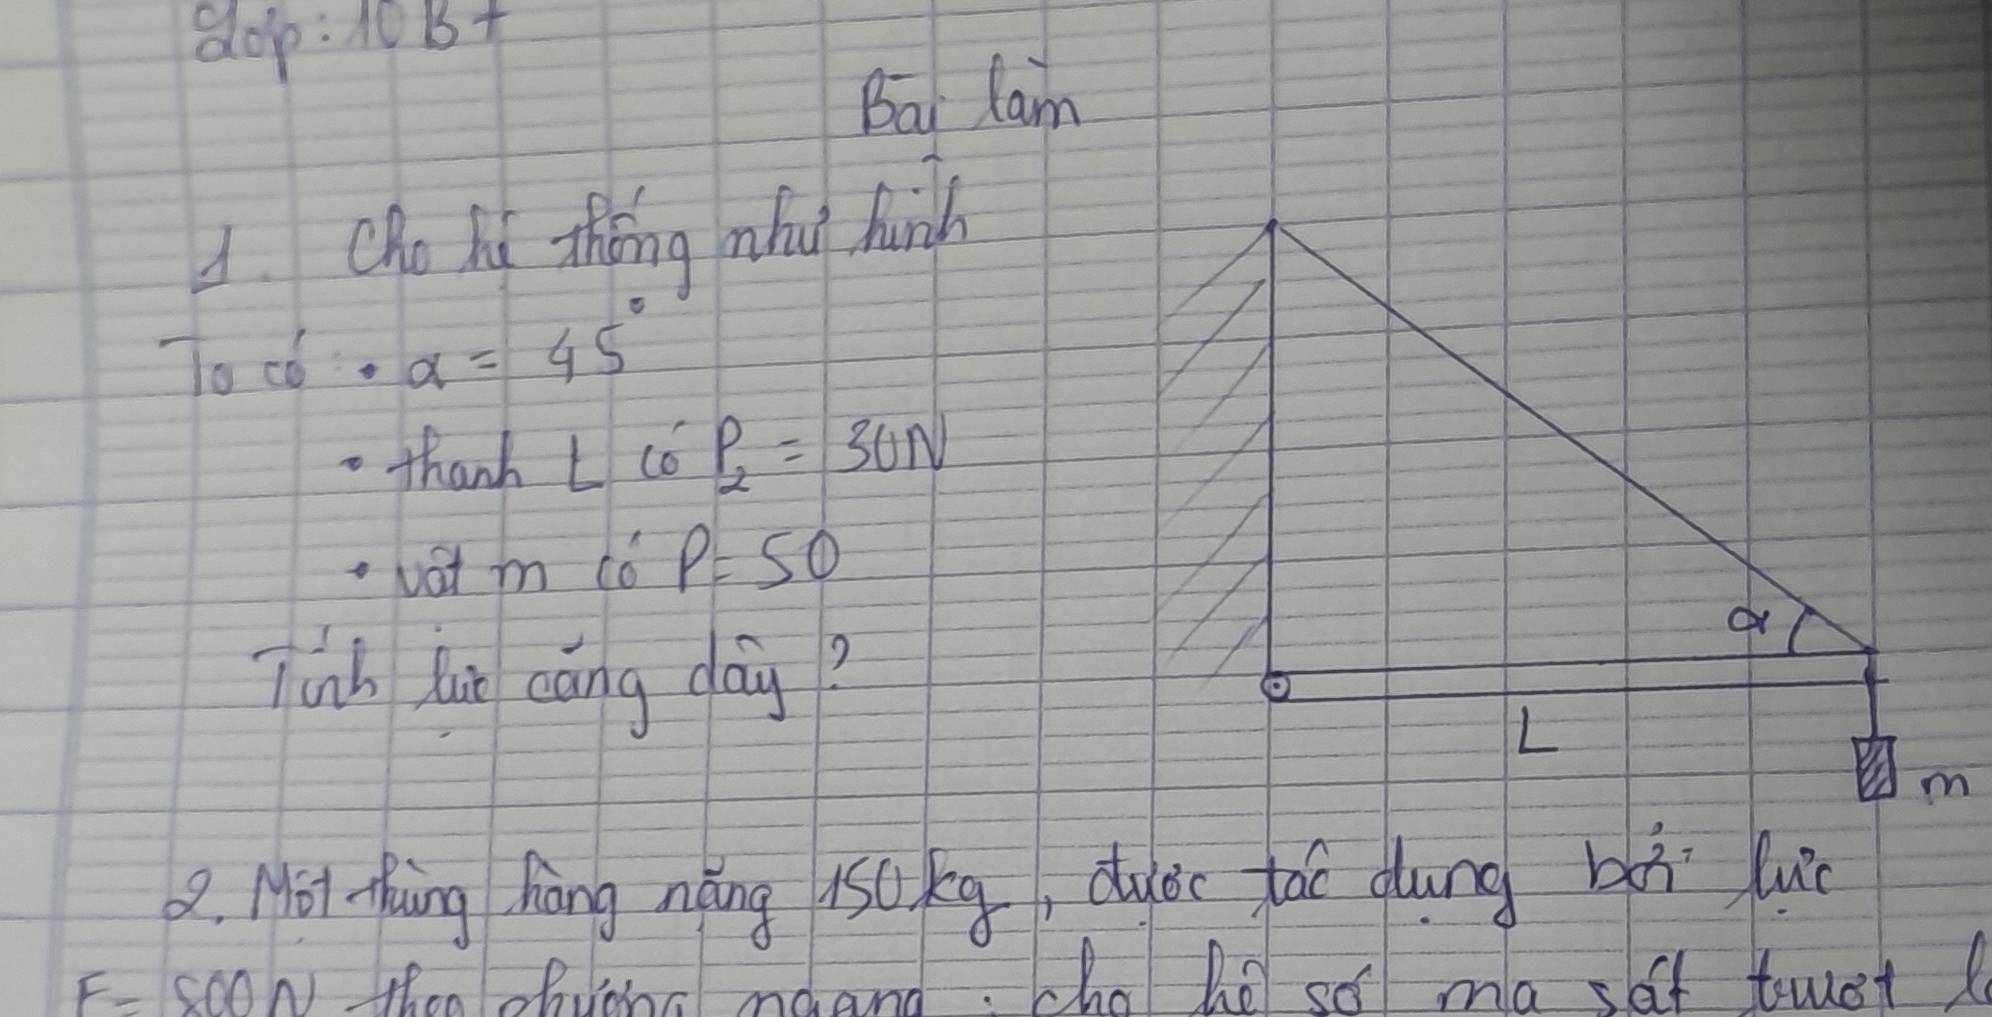 Lớp: 10 B7
Bài làm
1. Cho hệ thống như hình
Ta có: • α = 45°
• thanh L có P₂ = 30N
• vật m có P = 50
Tính lực căng dây?
α
L
m
2. Một thùng hàng nặng 150kg, được tác dụng bởi lực
F = 800N theo phương ngang. cho hệ số ma sát trượt